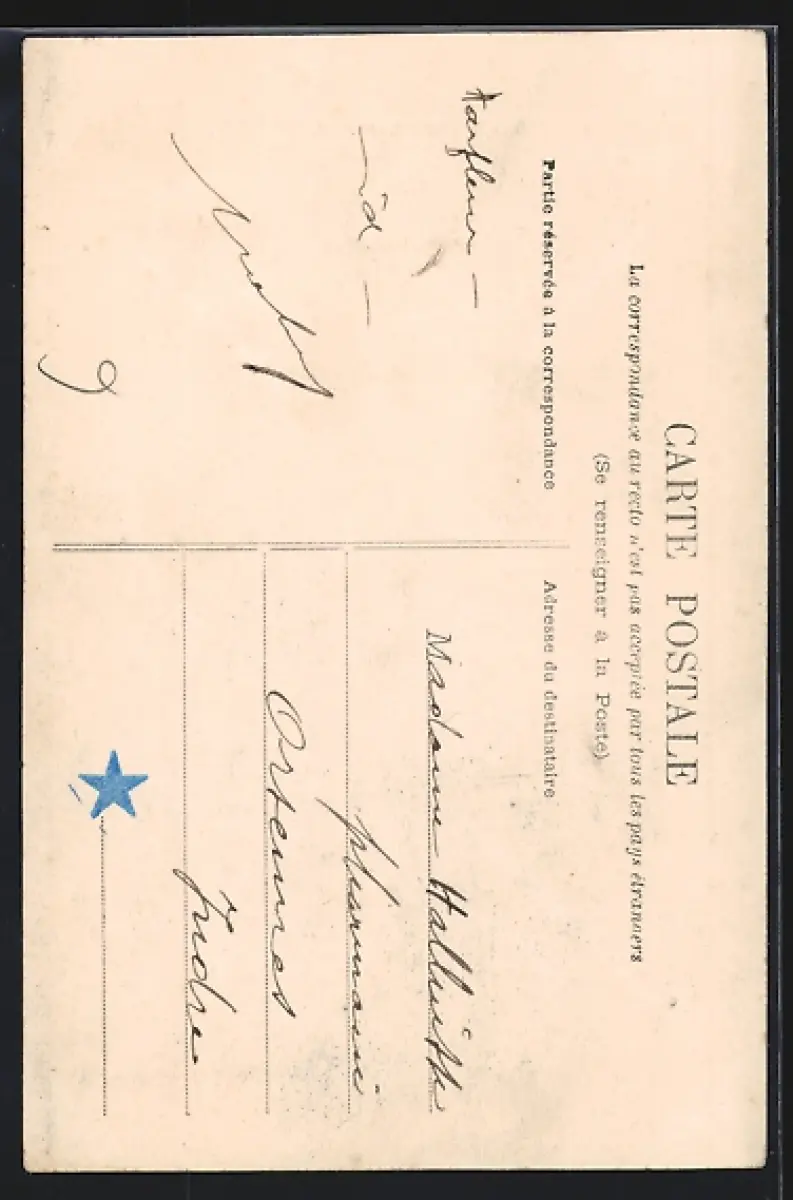 CARTE POSTALE
La correspondance au recto n'est pas acceptée par tous les pays étrangers
(Se renseigner à la Poste)
Partie réservée à la correspondance
Adresse du destinataire
Harfleur —
— id —
9
Madame
pharmacie
Indre